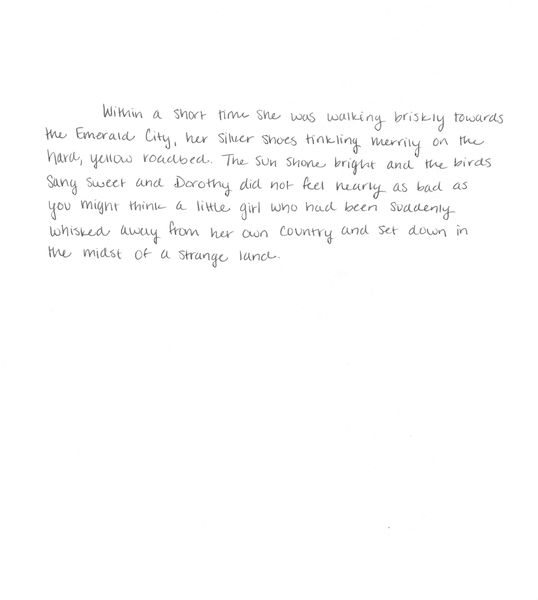 Within a short time she was walking briskly towards
the Emerald City, her silver shoes tinkling merrily on the
hard, yellow roadbed. The sun shone bright and the birds
sang sweet and Dorothy did not feel nearly as bad as
you might think a little girl who had been suddenly
whisked away from her own country and set down in
the midst of a strange land.